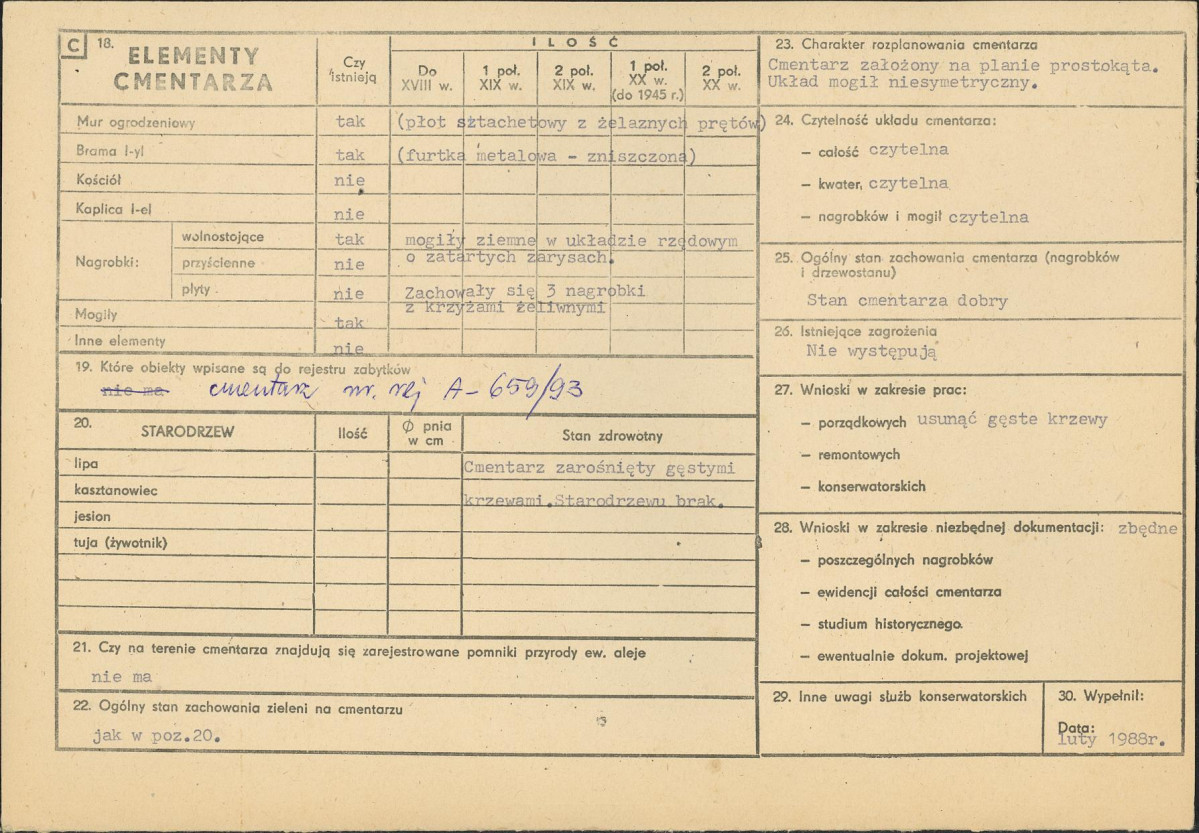 C 18. ELEMENTY
CMENTARZA
Czy
istnieją
ILOŚĆ
Do
XVIII w.
1 poł.
XIX w.
2 poł.
XIX w.
1 poł.
XX w.
(do 1945 r.)
2 poł.
XX w.
Mur ogrodzeniowy tak (płot sztachetowy z żelaznych prętów)
Brama I-yl tak (furtka metalowa - zniszczona)
Kościół nie
Kaplica I-el nie
Nagrobki:
wolnostojące tak mogiły ziemne w układzie rzędowym
o zatartych zarysach.
przyścienne nie
płyty nie Zachowały się 3 nagrobki
z krzyżami żeliwnymi
Mogiły tak
Inne elementy nie
19. Które obiekty wpisane są do rejestru zabytków
nie ma cmentarz nr. rej A-659/93
20. STARODRZEW
Ilość
Ø pnia
w cm
Stan zdrowotny
lipa Cmentarz zarośnięty gęstymi
kasztanowiec krzewami.Starodrzewu brak.
jesion
tuja (żywotnik)
21. Czy na terenie cmentarza znajdują się zarejestrowane pomniki przyrody ew. aleje
nie ma
22. Ogólny stan zachowania zieleni na cmentarzu
jak w poz.20.
23. Charakter rozplanowania cmentarza
Cmentarz założony na planie prostokąta.
Układ mogił niesymetryczny.
24. Czytelność układu cmentarza:
— całość czytelna
— kwater, czytelna
— nagrobków i mogił czytelna
25. Ogólny stan zachowania cmentarza (nagrobków
i drzewostanu)
Stan cmentarza dobry
26. Istniejące zagrożenia
Nie występują
27. Wnioski w zakresie prac:
— porządkowych usunąć gęste krzewy
— remontowych
— konserwatorskich
28. Wnioski w zakresie niezbędnej dokumentacji: zbędne
— poszczególnych nagrobków
— ewidencji całości cmentarza
— studium historycznego.
— ewentualnie dokum. projektowej
29. Inne uwagi służb konserwatorskich
30. Wypełnił:
Data:
luty 1988r.